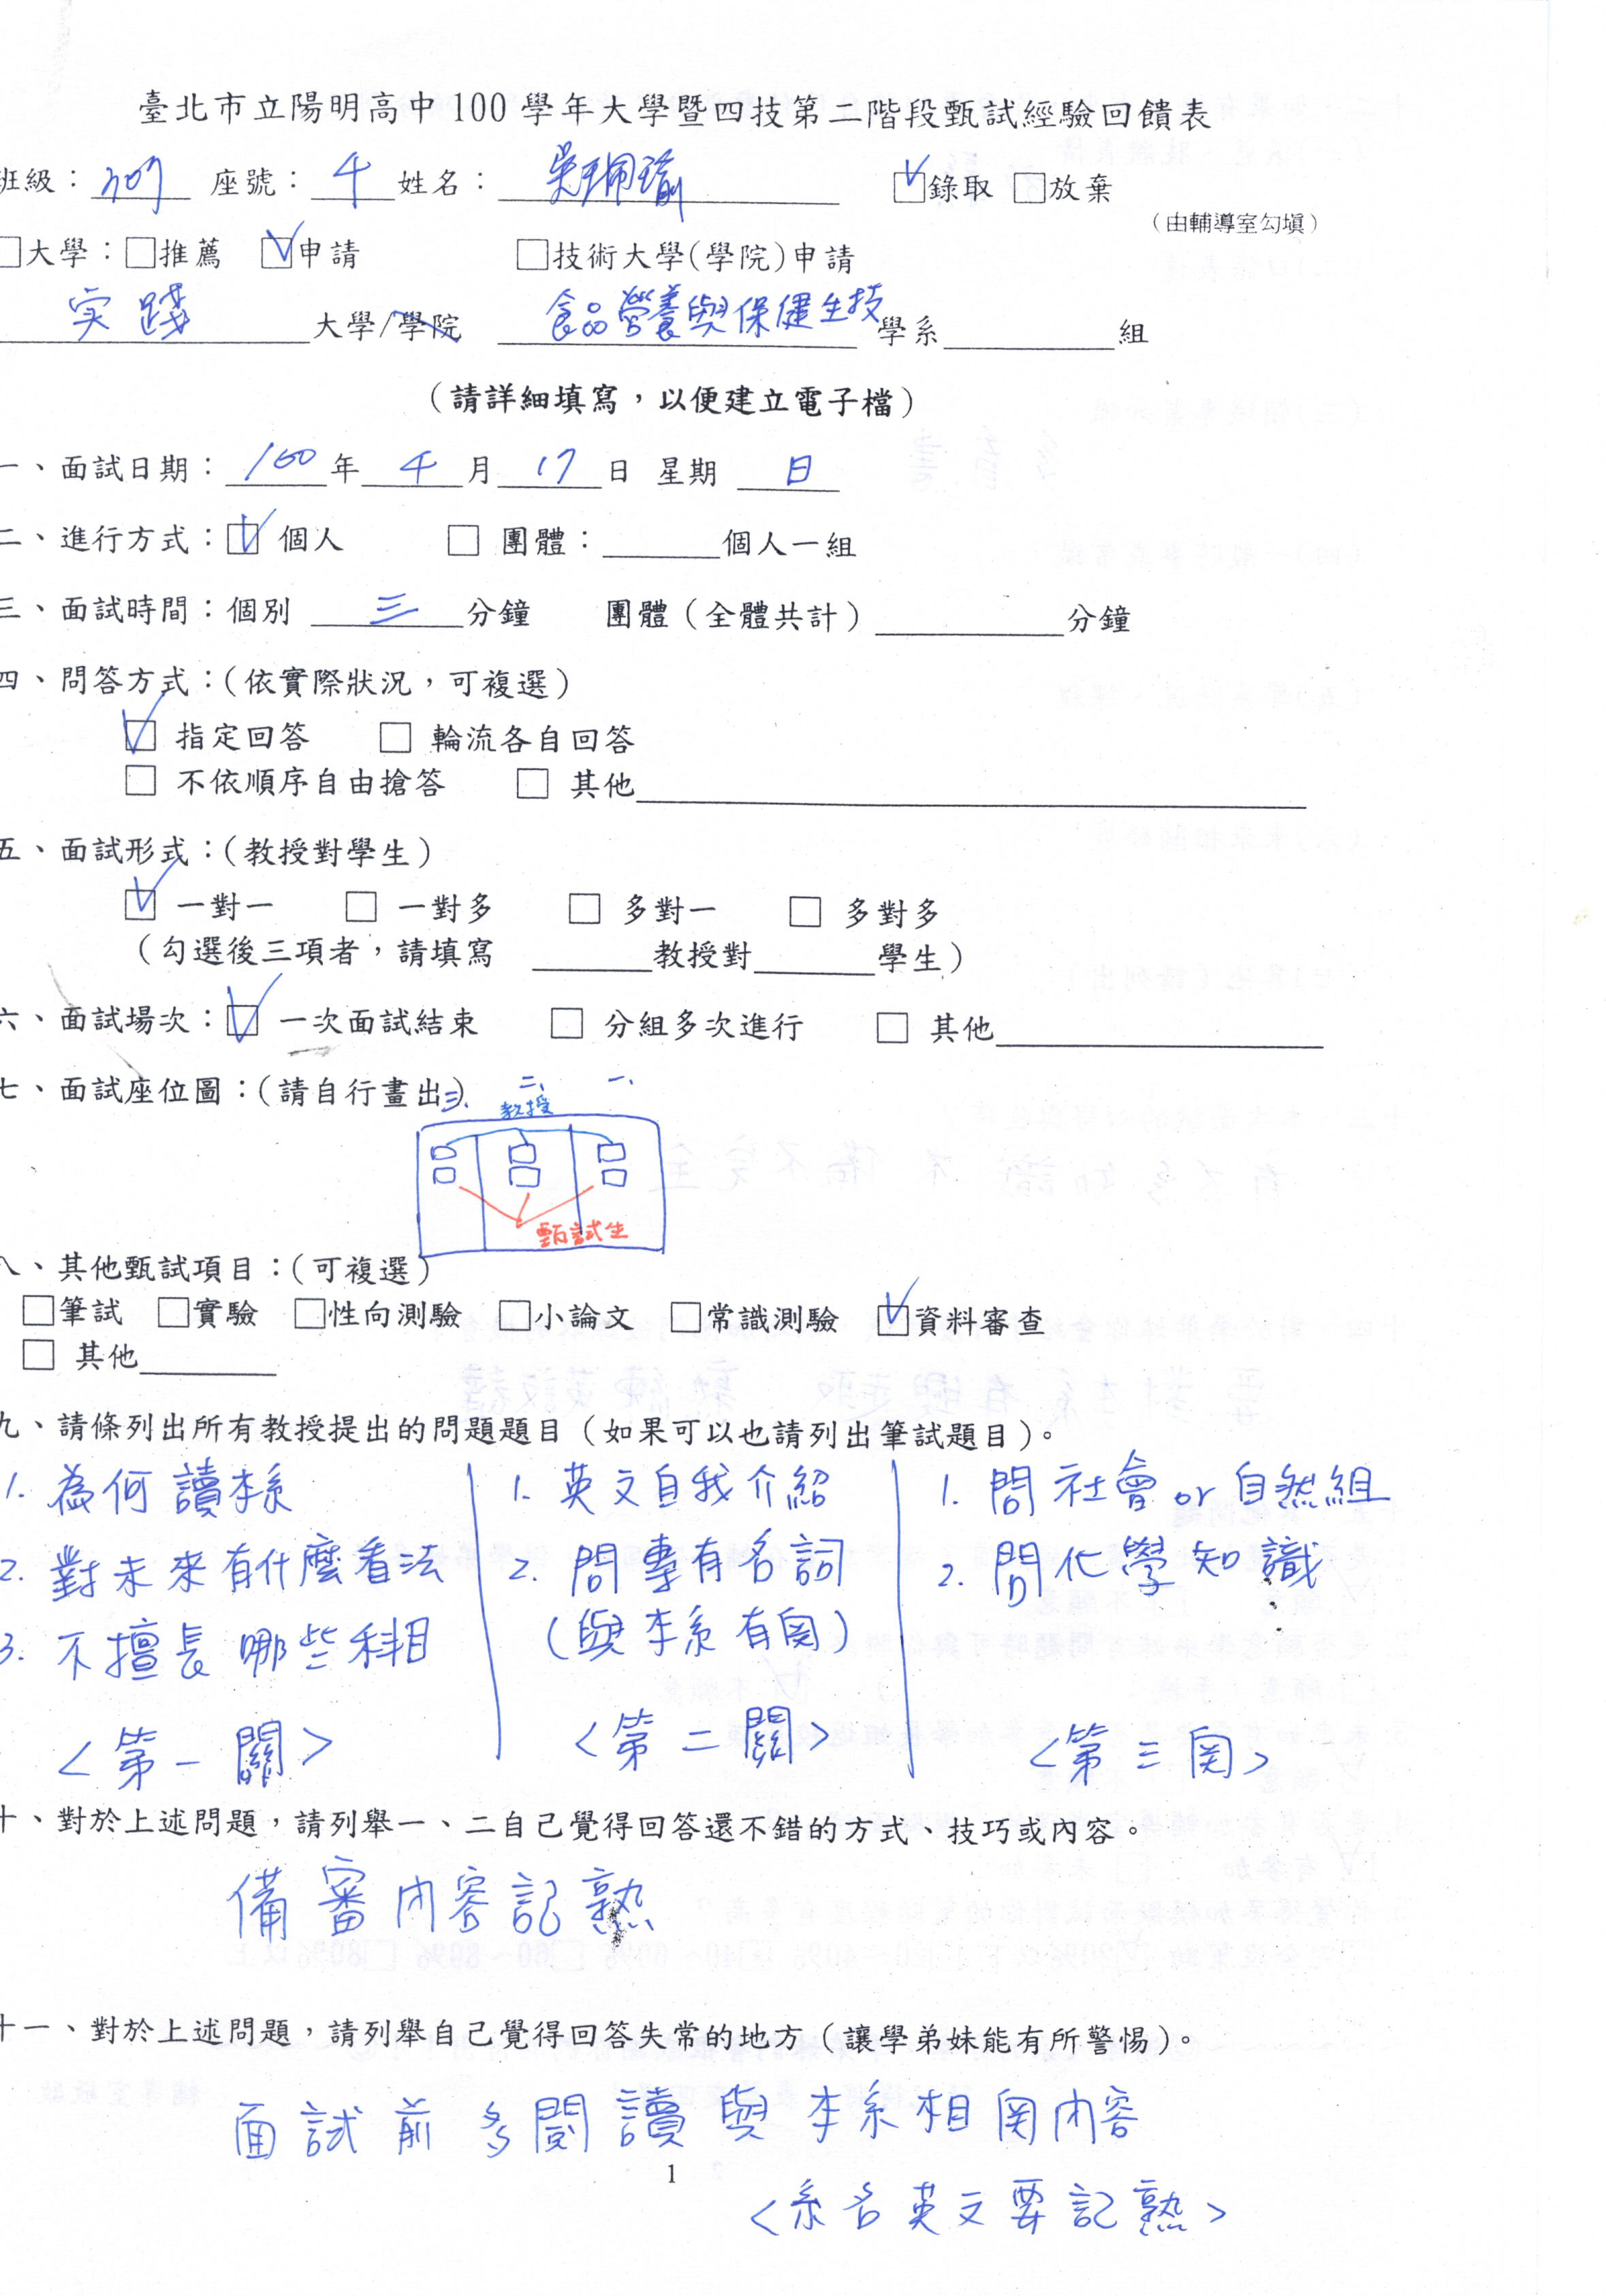 臺北市立陽明高中 100 學年大學暨四技第二階段甄試經驗回饋表
班級：307 座號：4 姓名：吳珮瑜 ☑錄取 □放棄
（由輔導室勾填）
□大學：□推薦 ☑申請 □技術大學(學院)申請
实踐 大學/學院 食品營養與保健生技 學系 組
（請詳細填寫，以便建立電子檔）
一、面試日期：100 年 4 月 17 日 星期 日
二、進行方式：☑ 個人 □ 團體： 個人一組
三、面試時間：個別 三 分鐘 團體（全體共計） 分鐘
四、問答方式：(依實際狀況，可複選)
☑ 指定回答 □ 輪流各自回答
□ 不依順序自由搶答 □ 其他
五、面試形式：(教授對學生)
☑ 一對一 □ 一對多 □ 多對一 □ 多對多
（勾選後三項者，請填寫 教授對 學生）
六、面試場次：☑ 一次面試結束 □ 分組多次進行 □ 其他
七、面試座位圖：(請自行畫出)
三、 二、 一、
教授
甄試生
八、其他甄試項目：(可複選)
□筆試 □實驗 □性向測驗 □小論文 □常識測驗 ☑資料審查
□ 其他
九、請條列出所有教授提出的問題題目（如果可以也請列出筆試題目）。
1. 為何讀本系
2. 對未來有什麼看法
3. 不擅長哪些科目
<第一關>
1. 英文自我介紹
2. 問專有名詞
(與本系有関)
<第二關>
1. 問社會 or 自然組
2. 問化學知識
<第三関>
十、對於上述問題，請列舉一、二自己覺得回答還不錯的方式、技巧或內容。
備審內容記熟
十一、對於上述問題，請列舉自己覺得回答失常的地方（讓學弟妹能有所警惕）。
面試前多閱讀與本系相関內容
<系名英文要記熟>
1